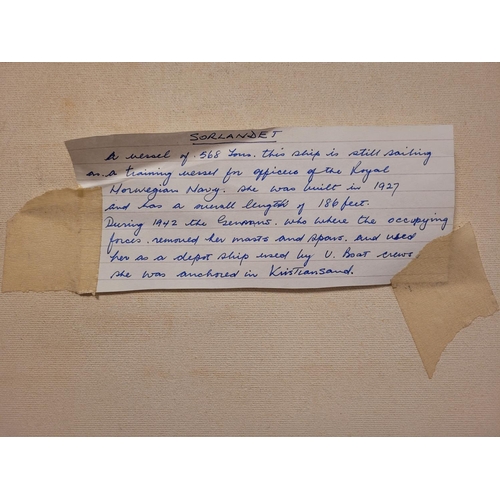 SORLANDET
A vessel of 568 Tons. this ship is still sailing
as a training vessel for officers of the Royal
Norwegian Navy. she was built in 1927
and has a overall length of 186 feet.
During 1942 the Germans. who where the occupying
forces. removed her masts and spars. and used
her as a depot ship used by U. Boat crews
she was anchored in Kristiansand.